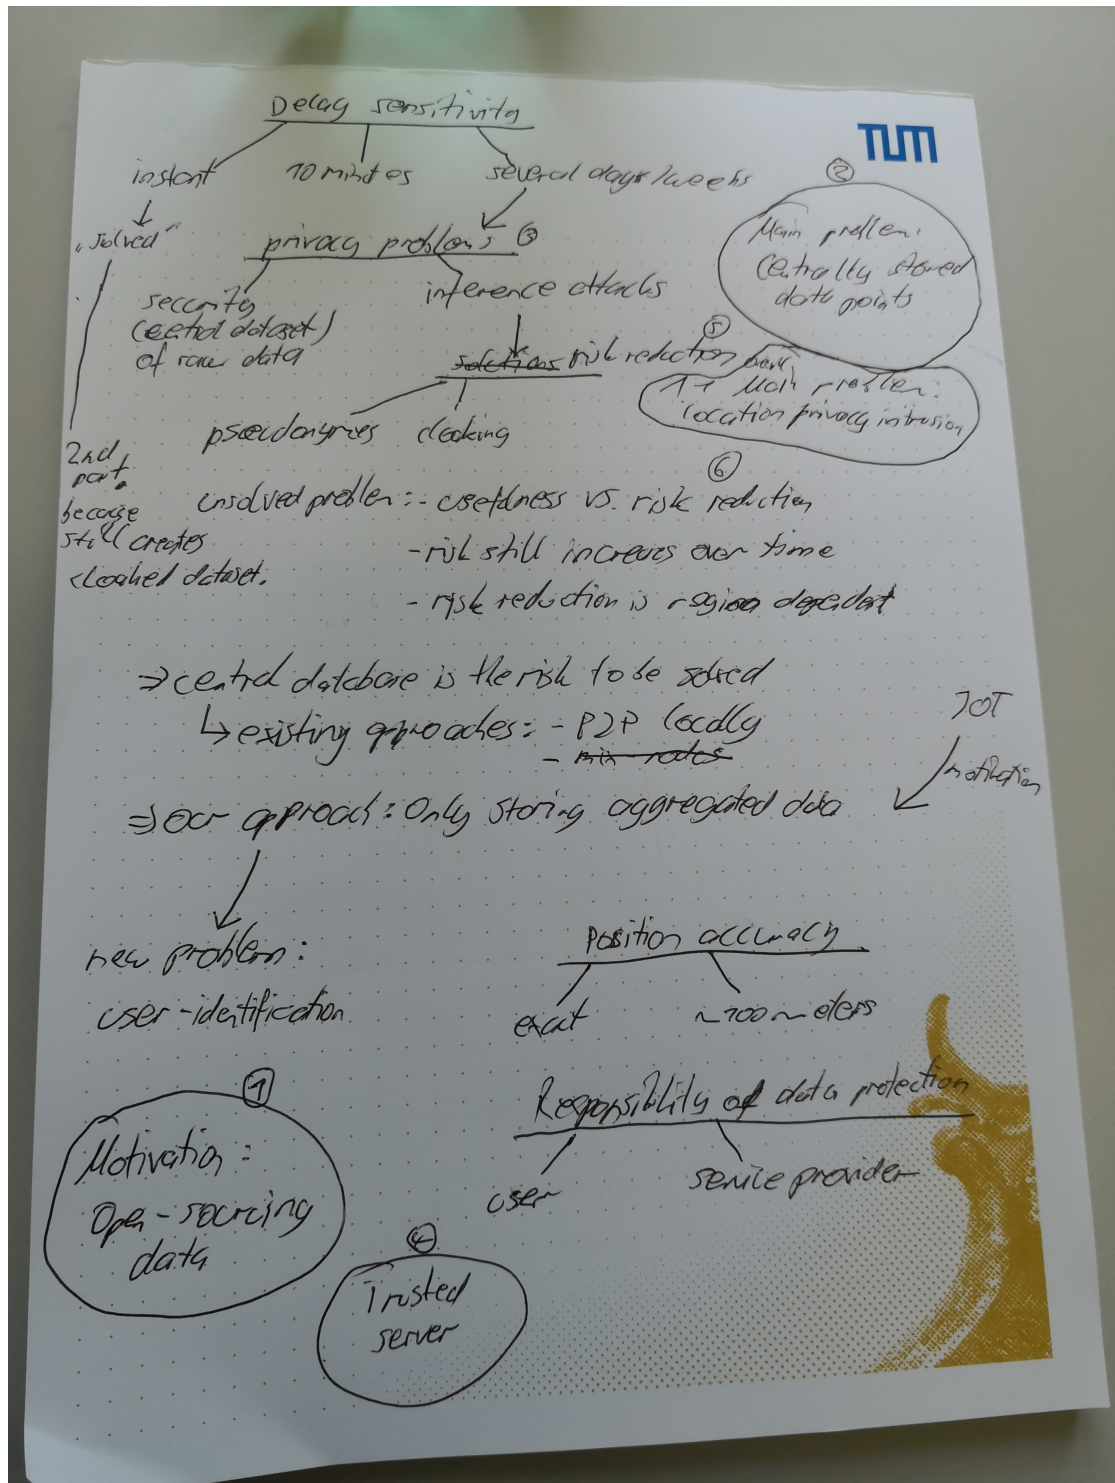 Delay sensitivity
TUM
instant
10 minutes
several days/weeks
②
"solved"
privacy problems ③
Main problem:
Centrally stored
data points
security
(central dataset)
of raw data
inference attacks
⑤
solutions risk reduction
1+ Main problem:
location privacy intrusion
pseudonymes
cloaking
2nd
part,
because
still creates
cloaked dataset.
⑥
unsolved problem: - usefulness vs. risk reduction
- risk still increases over time
- risk reduction is region dependent
⇒ central database is the risk to be solved
↳ existing approaches: - P2P locally
- mix nodes
IOT
motivation
⇒ our approach: Only storing aggregated data
new problem:
user-identification
Position accuracy
exact
~100 meters
①
Motivation:
Open-sourcing
data
Responsibility of data protection
user
service provider
④
Trusted
server